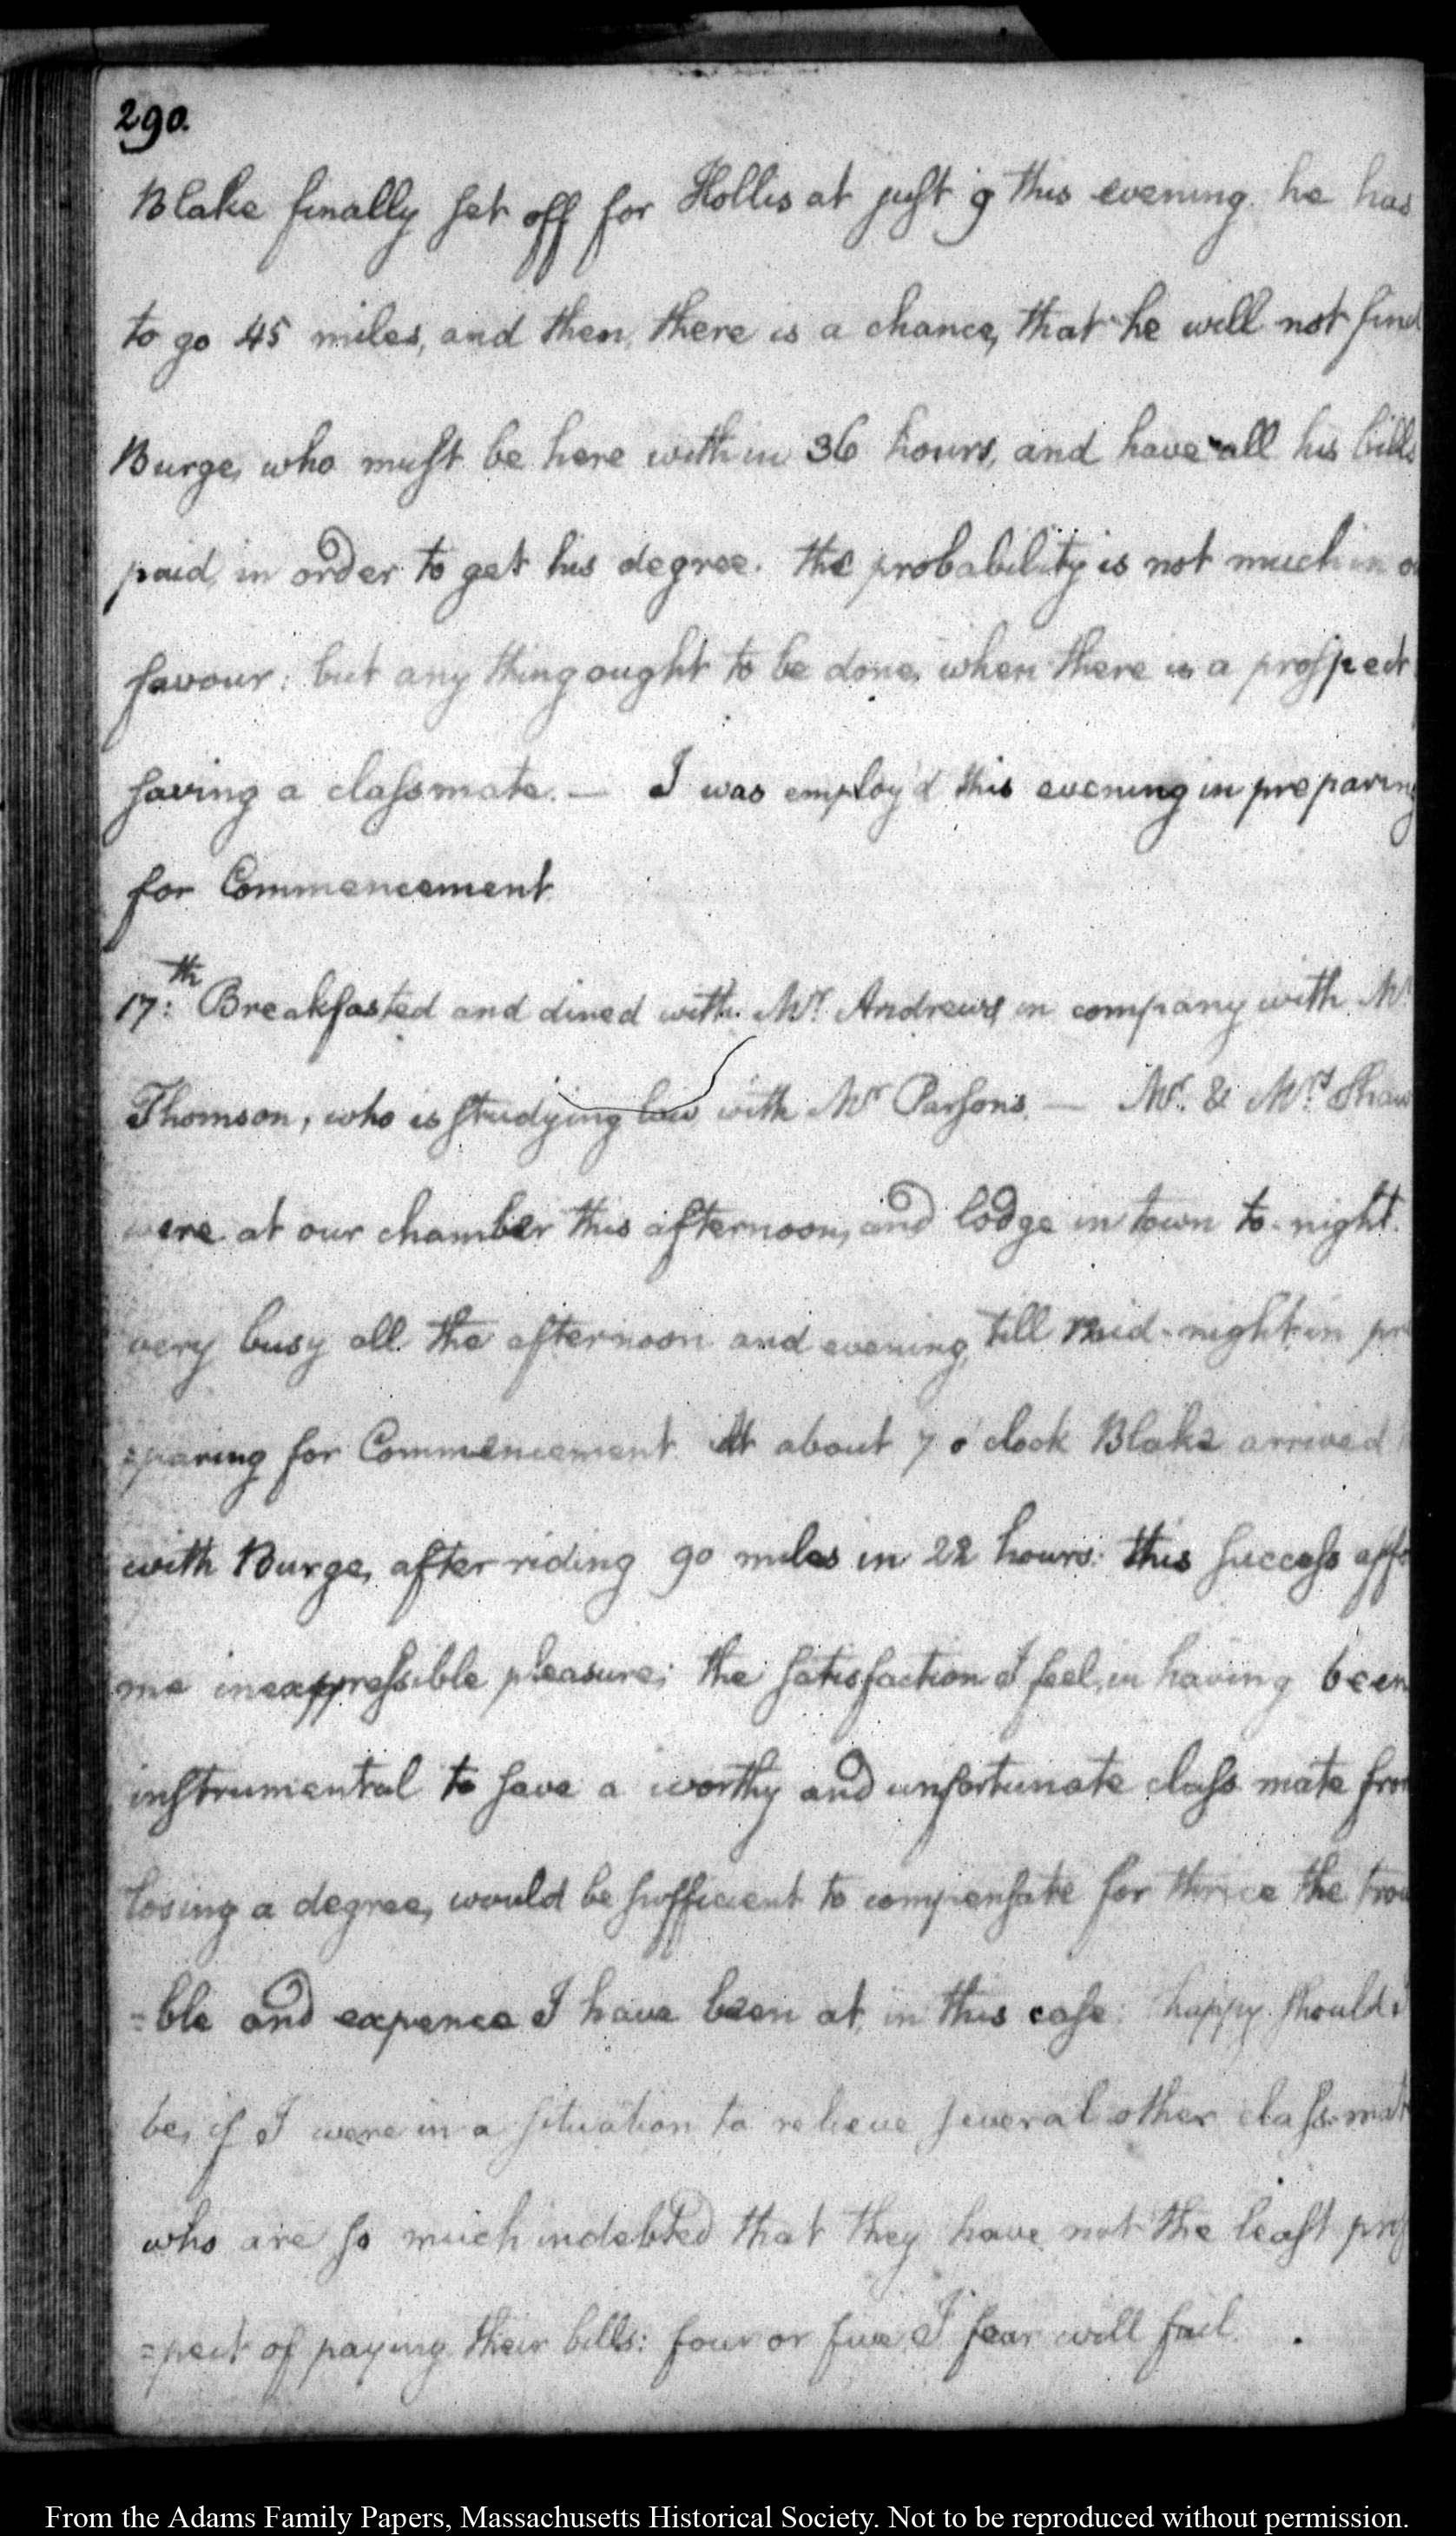 290.
Blake finally set off for Hollis at just 9 this evening. he has
to go 45 miles, and then, there is a chance, that he will not find
Burge, who must be here within 36 hours, and have all his bills
paid, in order to get his degree. the probability is not much in
favour: but any thing ought to be done, when there is a prospect
saving a classmate. — I was employ'd this evening in preparing
for Commencement.
17:th Breakfasted and dined with Mr. Andrews in company with Mr.
Thomson, who is studying law with Mr. Parsons. — Mr. & Mrs. Shaw
were at our chamber this afternoon, and lodge in town to-night.
very busy all the afternoon and evening, till mid-night in pre
=paring for Commencement. At about 7 o'clock Blake arrived
with Burge, after riding 90 miles in 22 hours: this success affo
me inexpressible pleasure; the satisfaction I feel, in having been
instrumental to save a worthy and unfortunate class mate from
losing a degree, would be sufficient to compensate for thrice the trou
=ble and expence I have been at, in this case: happy should I
be, if I were in a situation to relieve several other class-mat
who are so much indebted that they have not the least pros
=pect of paying their bills: four or five, I fear will fail.
From the Adams Family Papers, Massachusetts Historical Society. Not to be reproduced without permission.